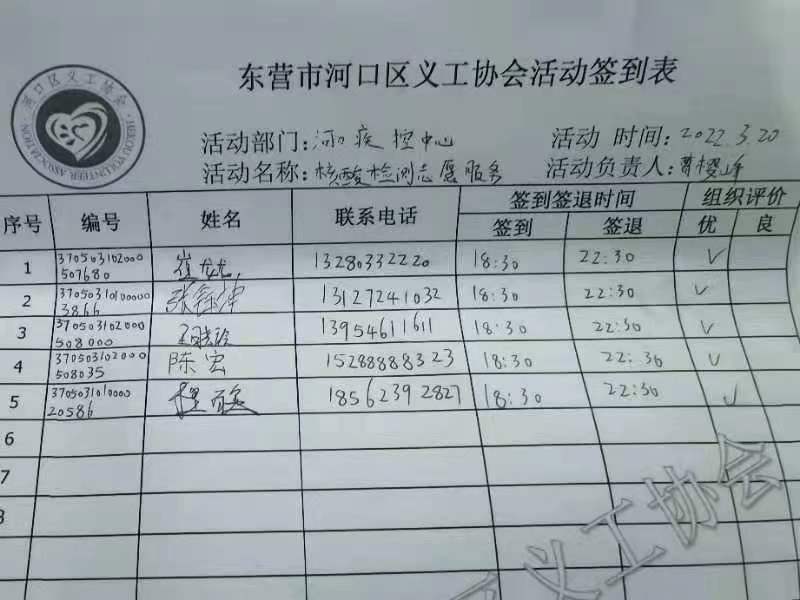 东营市河口区义工协会活动签到表
河口区义工协会
HEKOU VOLUNTEER ASSOCIATION
活动部门：河口疾控中心 活动 时间：2022.3.20
活动名称：核酸检测志愿服务 活动负责人：曹樱峰
序号 编号 姓名 联系电话 签到签退时间 组织评价
签到 签退 优 良
1 370503102000 13280332220 18:30 22:30 √
507680
2 37050310100000 张鑫坤 13127241032 18:30 22:30 √
3866
3 370503102000 13954611611 18:30 22:30 √
508000
4 370503102000 陈宏 15288888323 18:30 22:30 √
508035
5 3705031010000 程 18562392827 18:30 22:30 √
20586
6
7
8
区义工协会